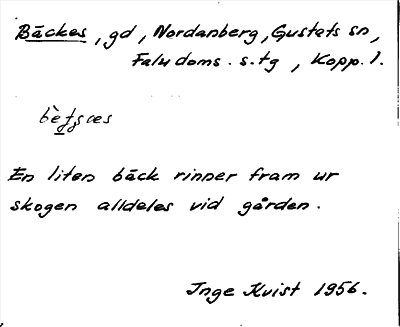 Bäckes, gd, Nordanberg, Gustafs sn,
Falu doms. s.tg, Kopp. l.
En liten bäck rinner fram ur
skogen alldeles vid gården.
Inge Kvist 1956.